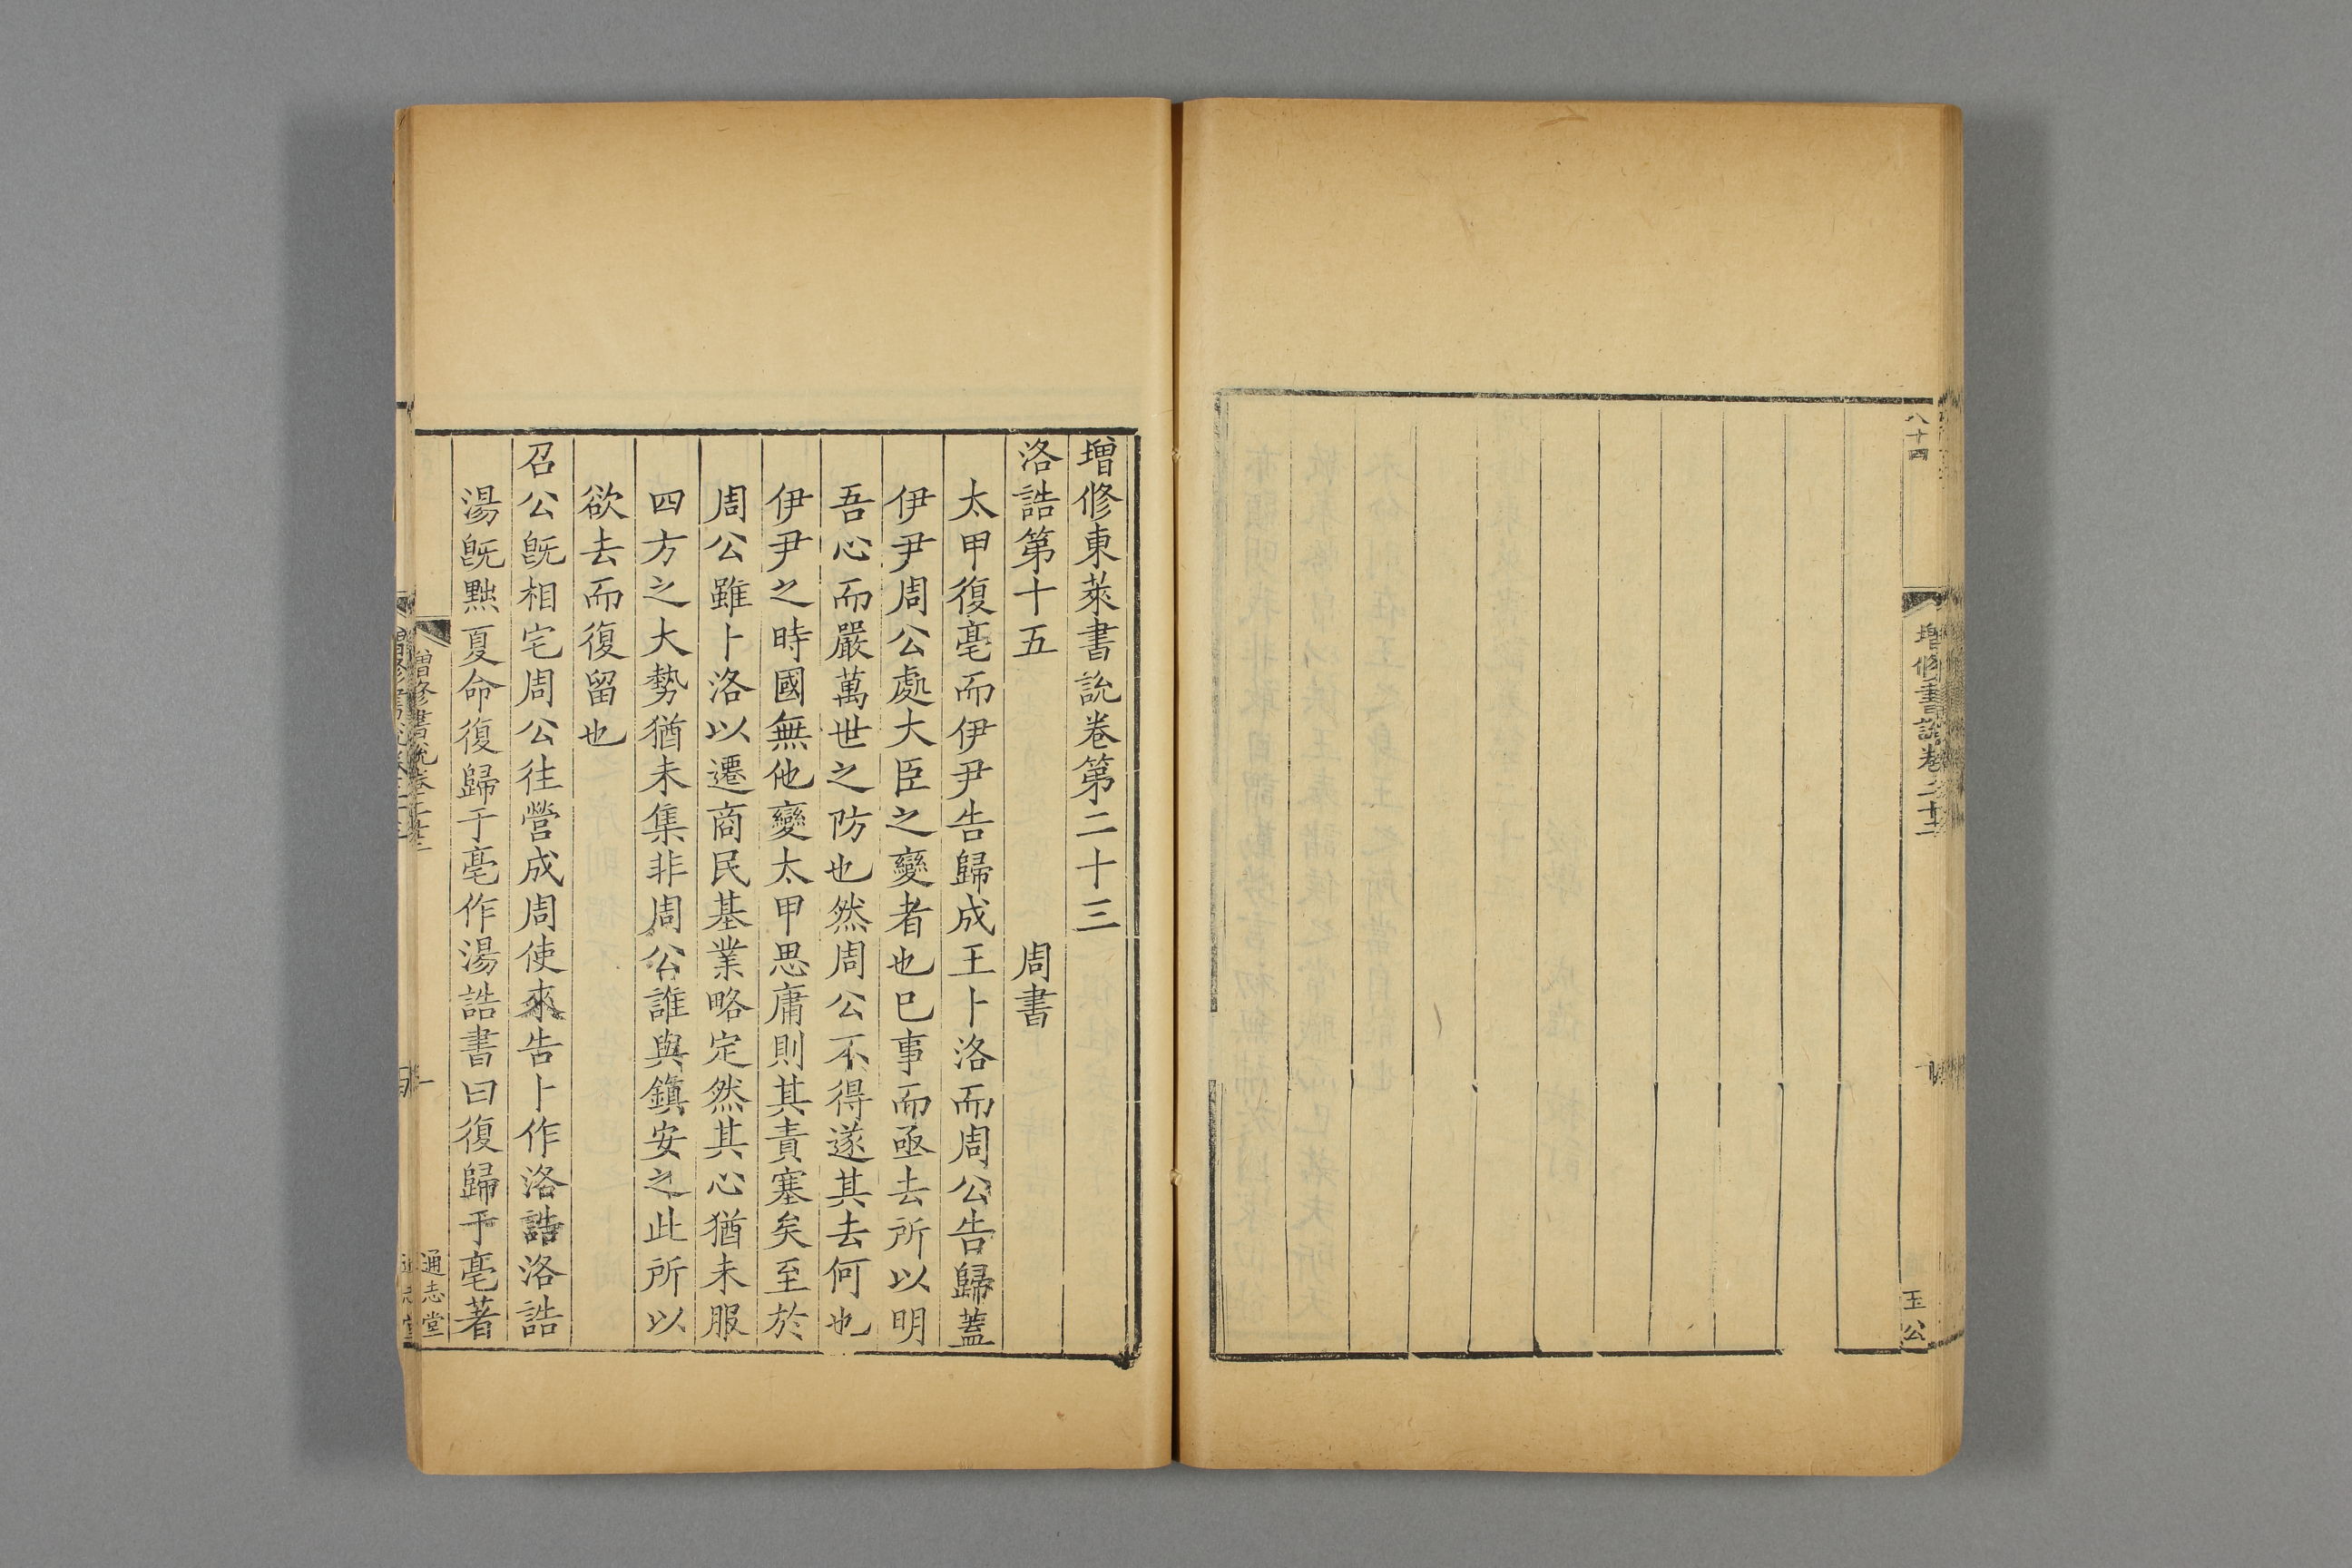 八十四
增修書說卷二十二
玉公
增修東萊書說卷第二十三
洛誥第十五 周書
太甲復亳而伊尹告歸成王卜洛而周公告歸蓋
伊尹周公處大臣之變者也已事而亟去所以明
吾心而嚴萬世之防也然周公不得遂其去何也
伊尹之時國無他變太甲思庸則其責塞矣至於
周公雖卜洛以遷商民基業略定然其心猶未服
四方之大勢猶未集非周公誰與鎮安之此所以
欲去而復留也
召公旣相宅周公往營成周使來告卜作洛誥洛誥
湯旣黜夏命復歸于亳作湯誥書曰復歸于亳著
增修書說卷二十三
一
通志堂